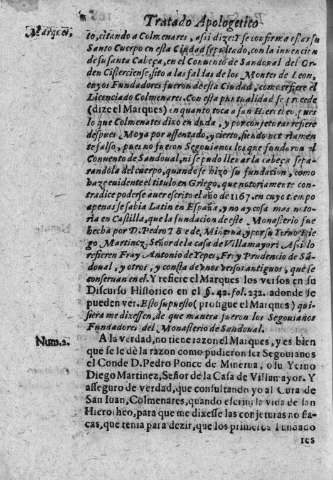 Tratado Apologetico
Marques,
to, citando a Colmenares, assi dize: Y se confirma estar su
Santo Cuerpo en esta Ciudad sepultado, con la inuencion
de su santa Cabeça, en el Conuento de Sandoual del Or-
den Cisterciense, sito a las faldas de los Montes de Leon,
cuyos Fundadores fueron de esta Ciudad, como refiere el
Licenciado Colmenares. Con esta puntualidad se procede
(dize el Marques) en quanto toca a san Hierotheo, pues
lo que Colmenares dixo en duda, y por conjeturas refiere
despues Moya por assentado, y cierto, siendo notoriamen
te falso, pues no fueron Segouianos los que fundaron el
Conuento de Sandoual, ni se pudo lleuar la cabeça sepa-
randola del cuerpo, quando se hizo su fundacion, como
haze euidente el titulo en Griego, que notoriamente con-
tradize poderse auer escrito el año de 1167. en cuyo tiempo
apenas se sabia Latin en España, y no ay cosa mas noto-
ria en Castilla, que la fundacion de este Monasterio fue
hecha por D. Pedro de Minerua, y por su Yerno Die-
go Martinez, Señor de la casa de Villamayor: Assi lo
refieren Fray Antonio de Yepes, Fray Prudencio de San-
doual, y otros, y consta de vnos versos antiguos, que se
conseruan en el. Y refiere el Marques los versos en su
Discurso Historico en el §. 42. fol. 232. adonde se
pueden ver. Esto supuesto (prosigue el Marques) qui-
siera me dixessen, de que manera fueron los Segouianos
Fundadores del Monasterio de Sandoual.
Num. 2.
A la verdad, no tiene razon el Marques, y es bien
que se le dè la razon como pudieron ser Segouianos
el Conde D. Pedro Ponce de Minerua, o su Yerno
Diego Martinez, Señor de la Casa de Villamayor. Y
asseguro de verdad, que consultando yo al Cura de
San Iuan, Colmenares, quando escriuì la vida de san
Hierotheo, para que me dixesse las conjeturas no fla-
cas, que tenia para dezir, que los primeros Fundado
res